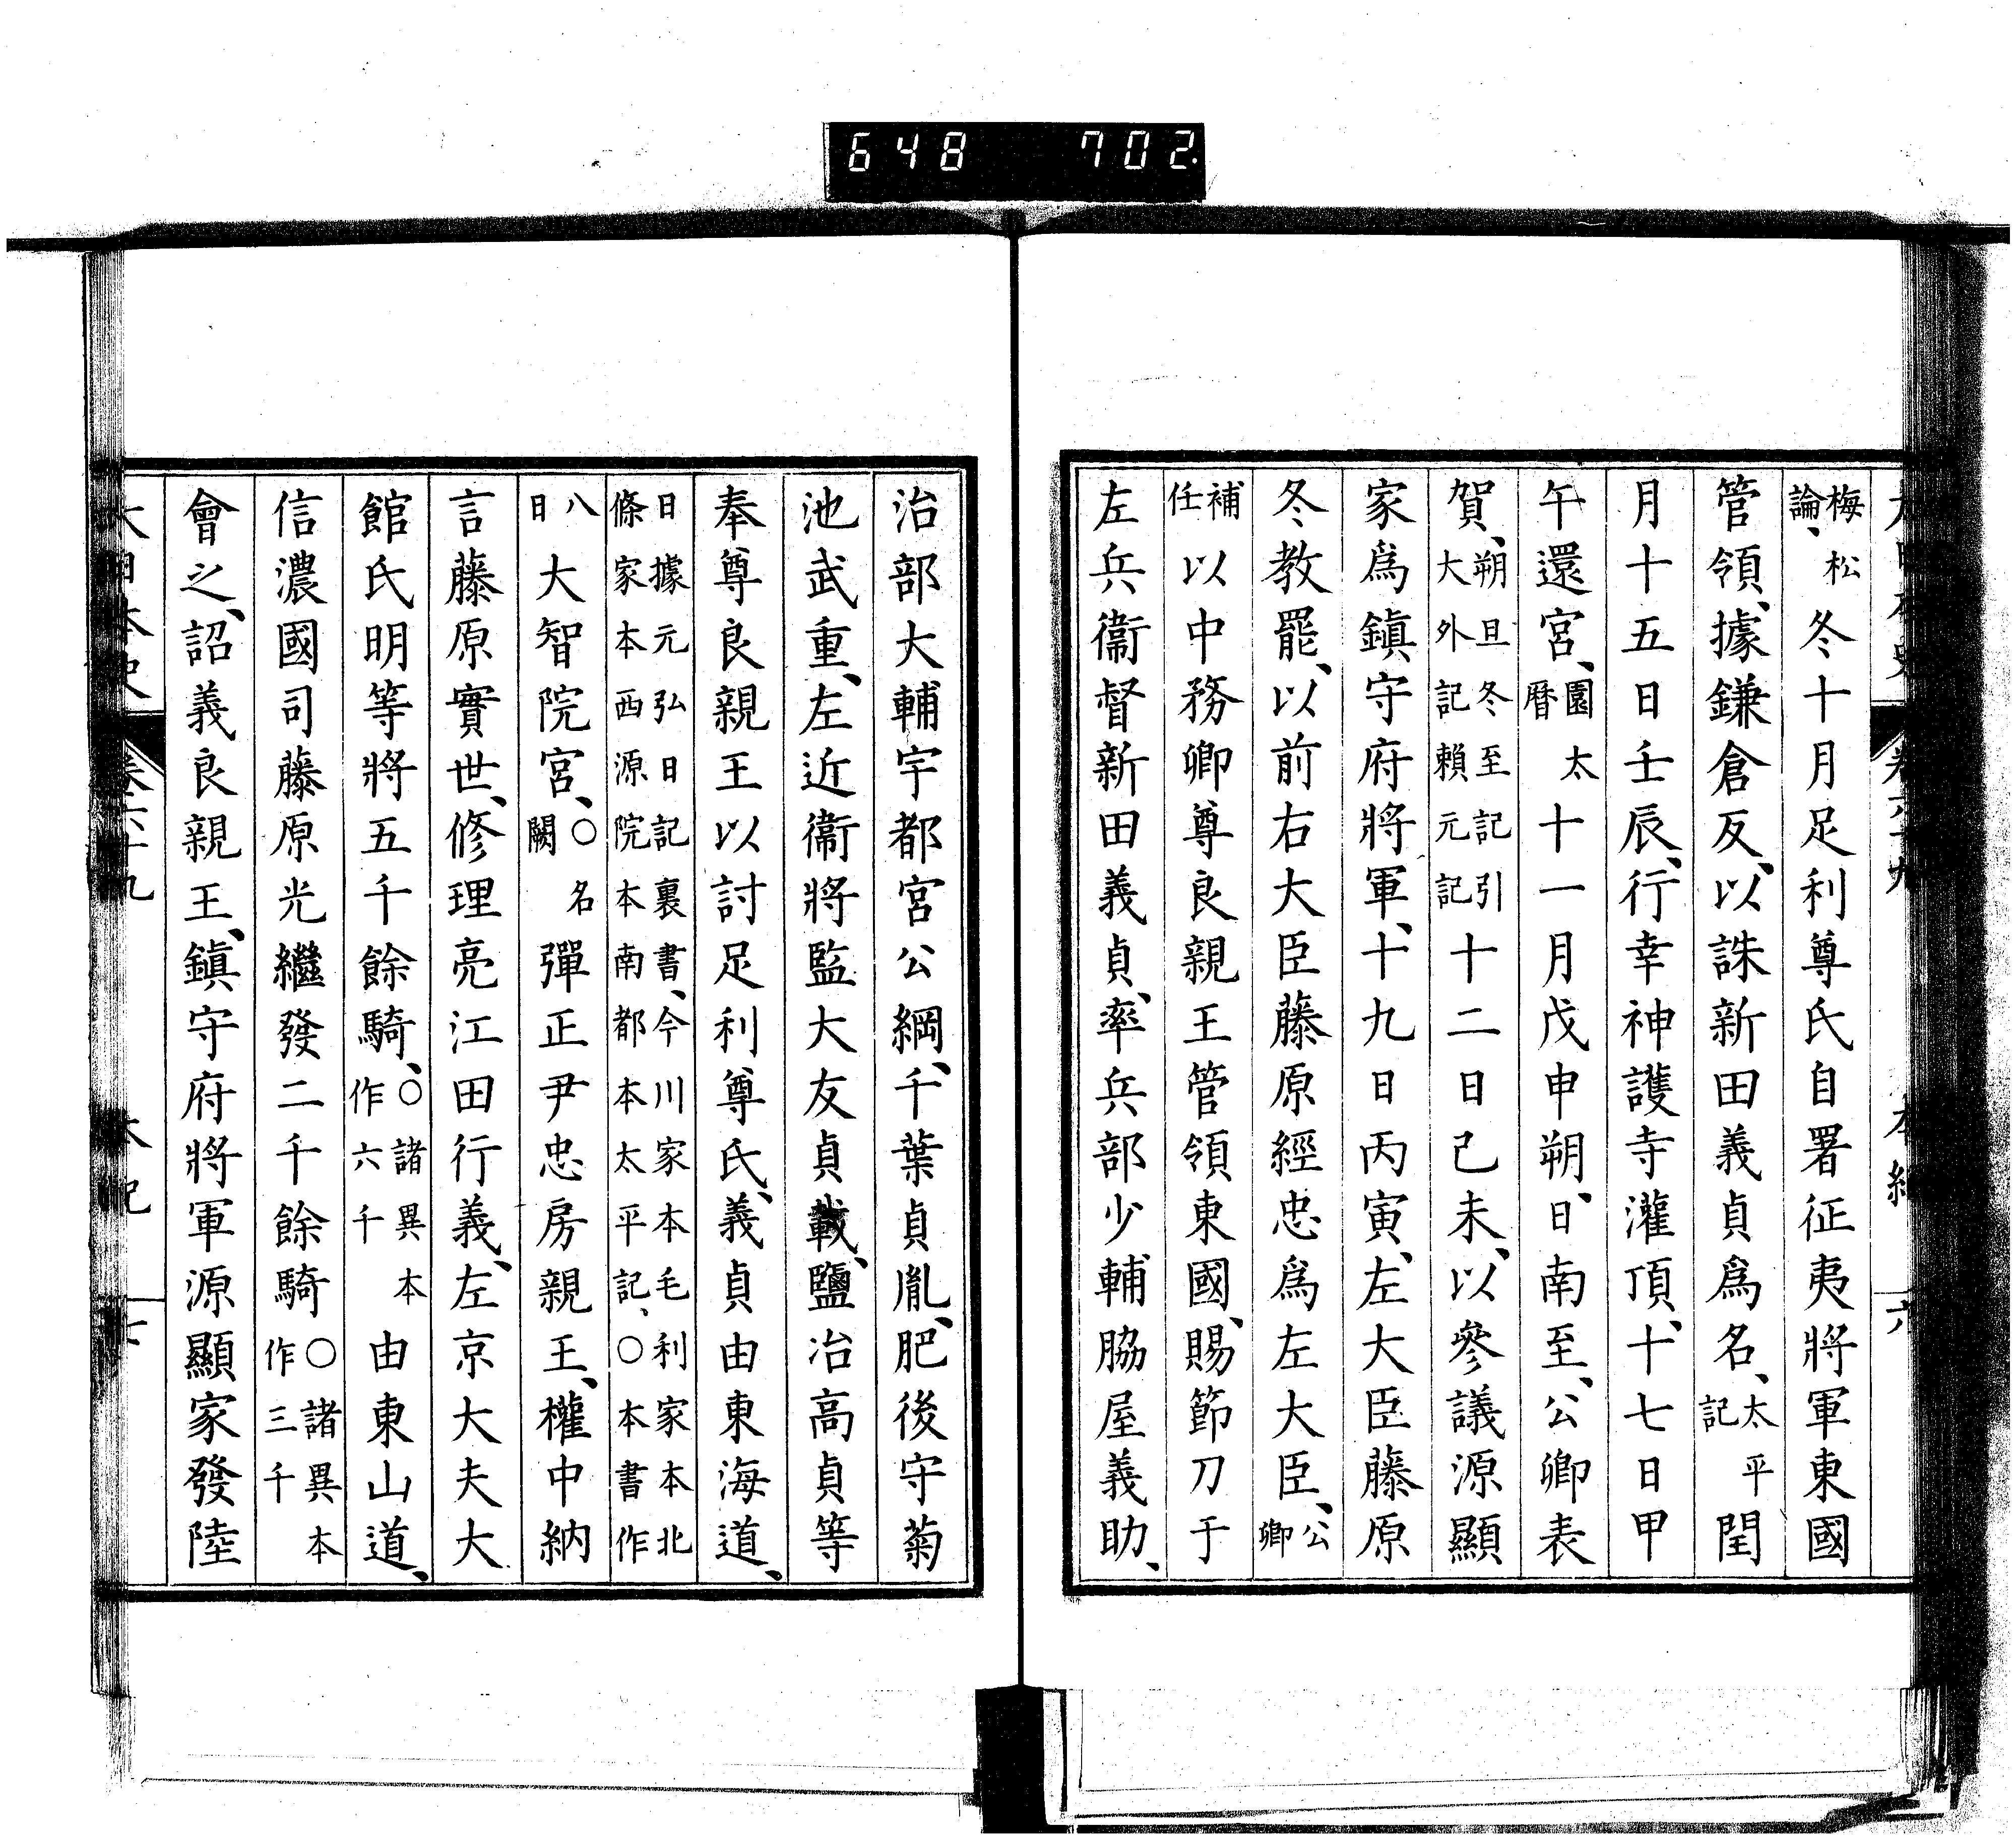 648 702.
大日本史 卷六十九 本紀 六
梅松論、冬十月足利尊氏自署征夷將軍東國
管領、據鎌倉反、以誅新田義貞爲名、太平記閏
月十五日壬辰、行幸神護寺灌頂、十七日甲
午還宮、園太曆十一月戊申朔、日南至、公卿表
賀、朔旦冬至記引大外記賴元記十二日己未、以參議源顯
家爲鎮守府將軍、十九日丙寅、左大臣藤原
冬教罷、以前右大臣藤原經忠爲左大臣、公卿
補任以中務卿尊良親王管領東國、賜節刀于
左兵衞督新田義貞、率兵部少輔脇屋義助、
治部大輔宇都宮公綱、千葉貞胤、肥後守菊
池武重、左近衞將監大友貞載、鹽冶高貞等
奉尊良親王以討足利尊氏、義貞由東海道、
日據元弘日記裏書、今川家本毛利家本北條家本西源院本南都本太平記、○本書作
八日大智院宮、○名闕彈正尹忠房親王、權中納
言藤原實世、修理亮江田行義、左京大夫大
館氏明等將五千餘騎、○諸異本作六千由東山道、
信濃國司藤原光繼發二千餘騎○諸異本作三千
會之、詔義良親王、鎮守府將軍源顯家發陸
大日本史 卷六十九 本紀 七